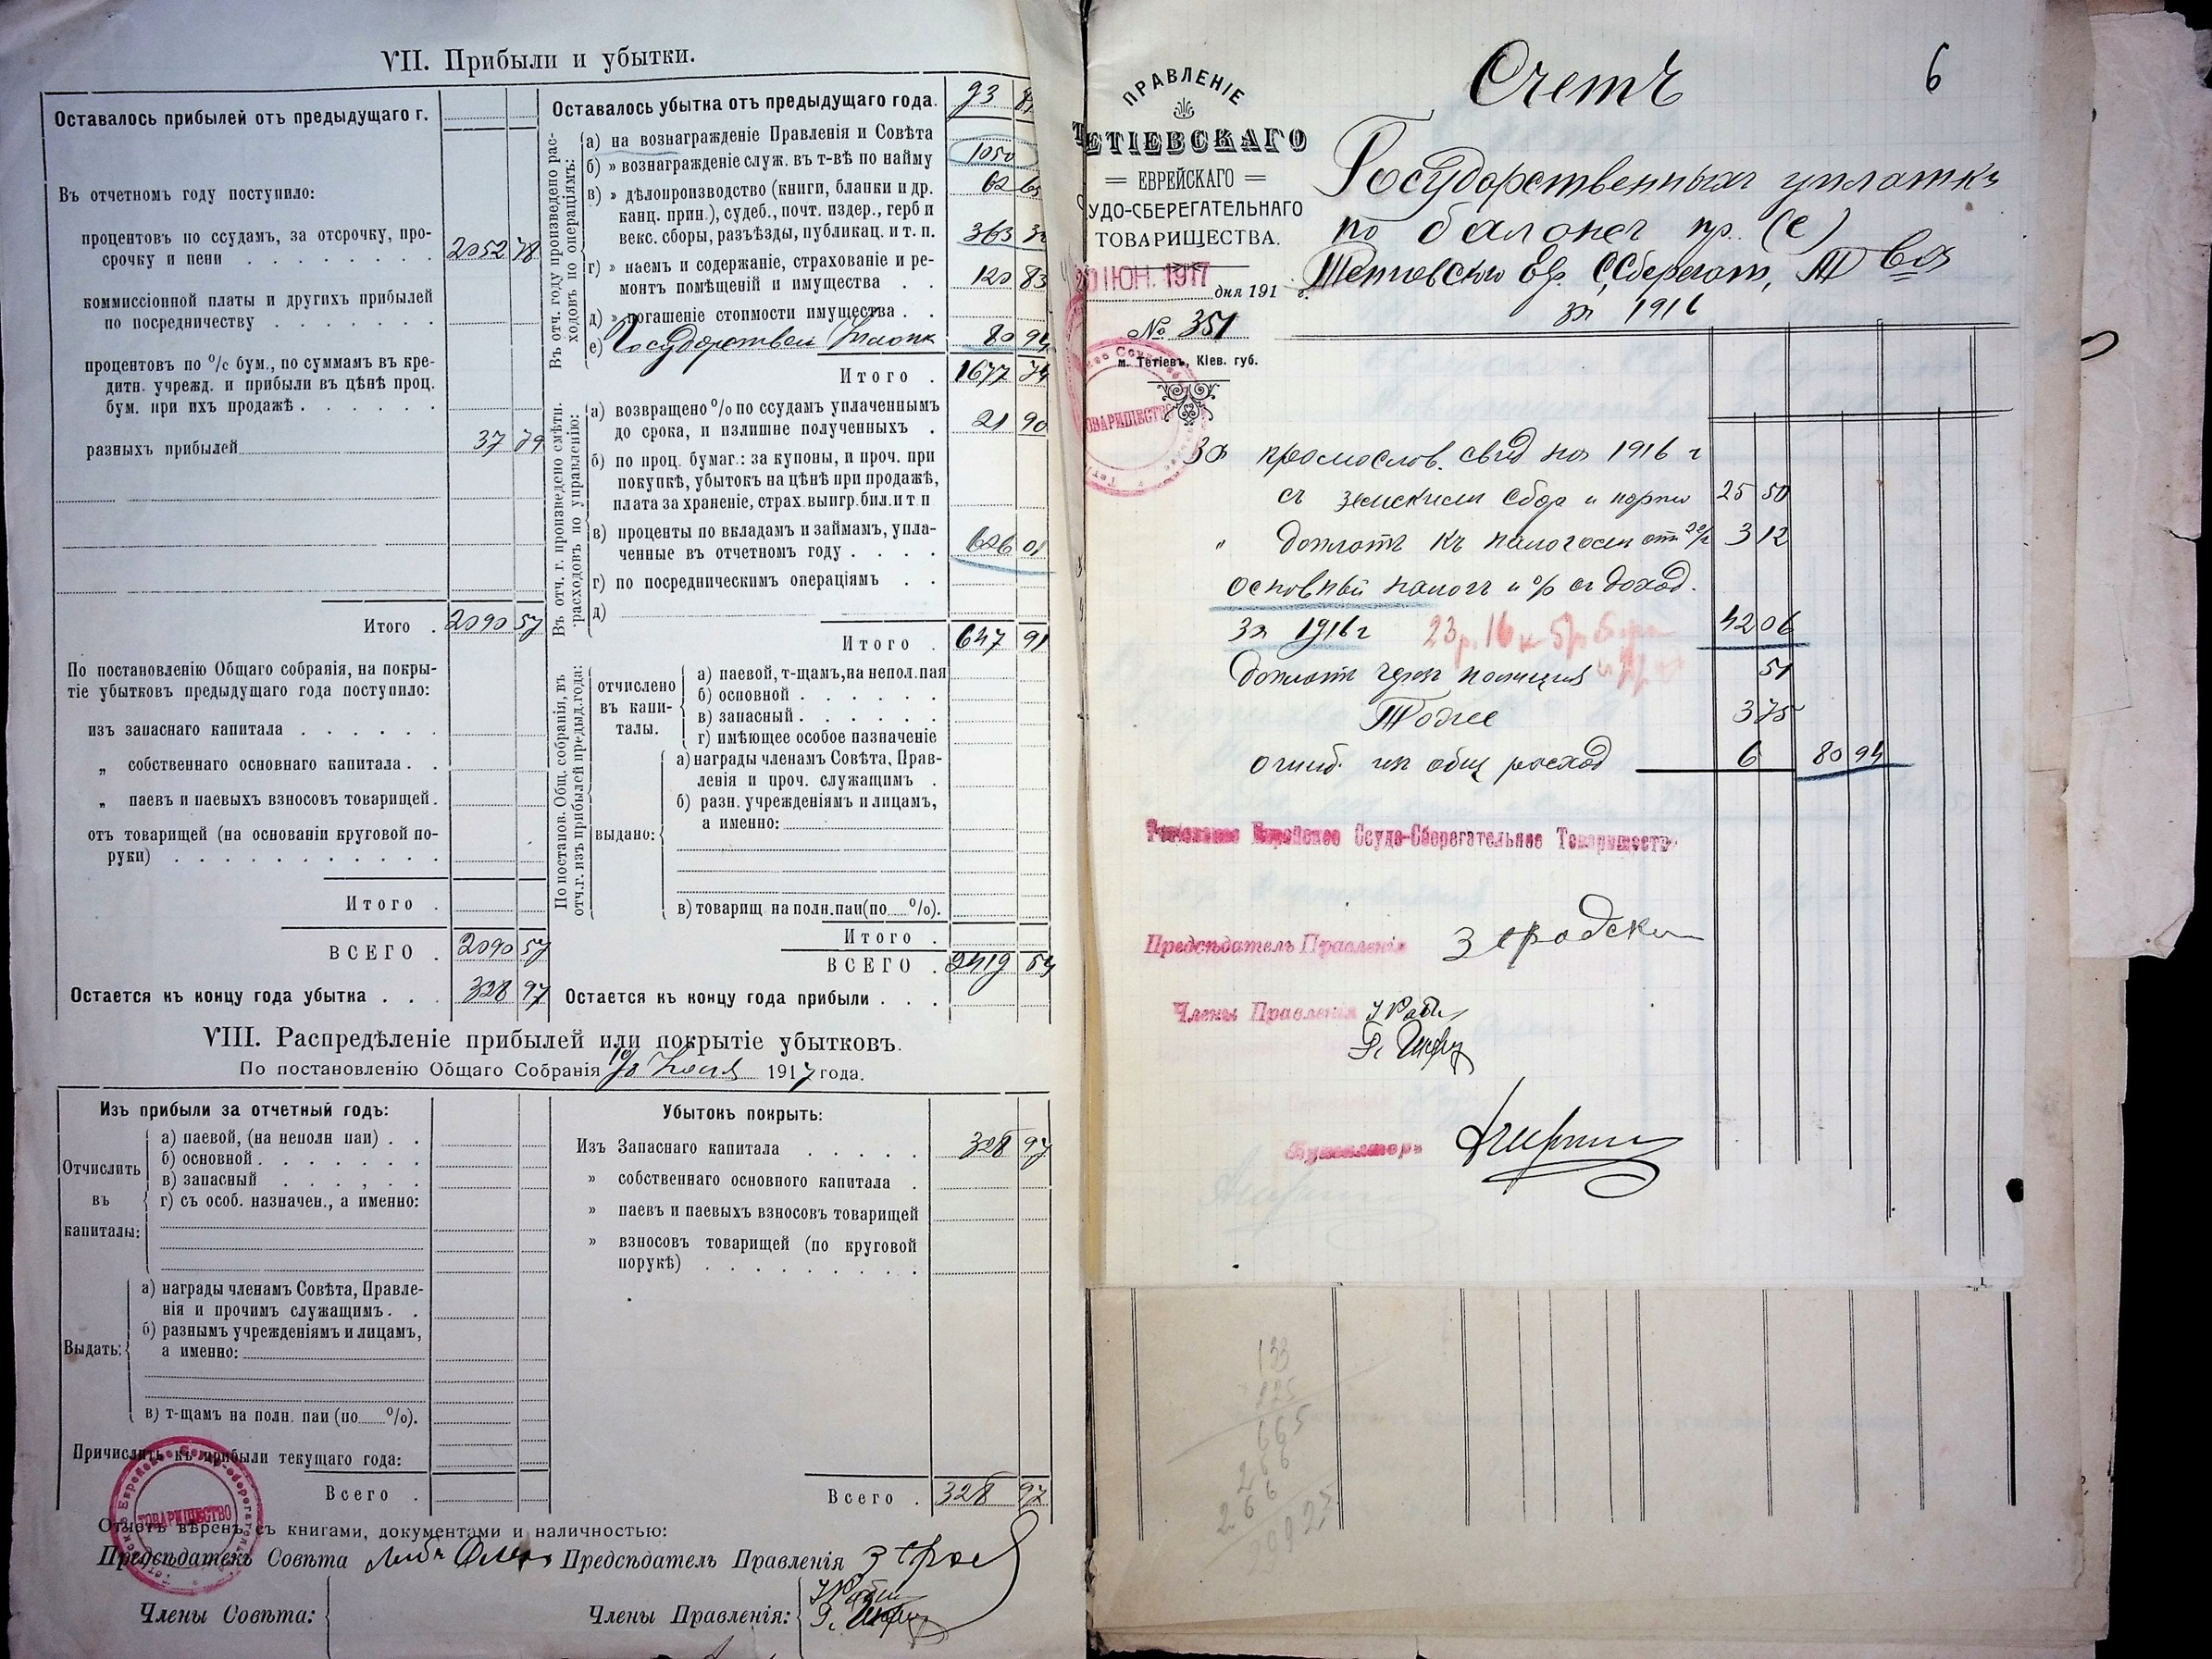 VII. Прибыли и убытки.
Оставалось прибылей отъ предыдущаго г.
Въ отчетномъ году поступило:
процентовъ по ссудамъ, за отсрочку, про-
срочку и пени . . . . . . . . 2052 78
коммиссіонной платы и другихъ прибылей
по посредничеству . . . . . . .
процентовъ по % бум., по суммамъ въ кре-
дитн. учрежд. и прибыли въ цѣнѣ проц.
бум. при ихъ продажѣ . . . . . .
разныхъ прибылей 37 79
Итого . 2090 57
По постановленію Общаго собранія, на покры-
тіе убытковъ предыдущаго года поступило:
изъ запаснаго капитала . . . . . .
„ собственнаго основнаго капитала . .
„ паевъ и паевыхъ взносовъ товарищей .
отъ товарищей (на основаніи круговой по-
руки) . . . . . . . . . . .
Итого .
ВСЕГО . 2090 57
Остается къ концу года убытка . . . 328 97
Оставалось убытка отъ предыдущаго года. 93
Въ отч. году произведено рас-
ходовъ по операціямъ:
а) на вознагражденіе Правленія и Совѣта
б) » вознагражденіе служ. въ т-вѣ по найму 1050
в) » дѣлопроизводство (книги, бланки и др.
канц. прин.), судеб., почт. издер., герб и
векс. сборы, разъѣзды, публикац. и т. п. 363
г) » наемъ и содержаніе, страхованіе и ре-
монтъ помѣщеній и имущества . . 120 83
д) » погашеніе стоимости имущества . .
е) 80 94
Итого . 1677 74
Въ отч. г. произведено смѣтн.
расходовъ по управленію:
а) возвращено % по ссудамъ уплаченнымъ
до срока, и излишне полученныхъ . 21 90
б) по проц. бумаг.: за купоны, и проч. при
покупкѣ, убытокъ на цѣнѣ при продажѣ,
плата за храненіе, страх. выигр. бил. и т п
в) проценты по вкладамъ и займамъ, упла-
ченные въ отчетномъ году . . . . 626 01
г) по посредническимъ операціямъ . .
д)
Итого . 647 91
По постанов. Общ. собранія, въ
отч. г. изъ прибылей предыд. года:
отчислено
въ капи-
талы.
а) паевой, т-щамъ, на непол. паи
б) основной . . . . . .
в) запасный . . . . . .
г) имѣющее особое назначеніе
выдано:
а) награды членамъ Совѣта, Прав-
ленія и проч. служащимъ .
б) разн. учрежденіямъ и лицамъ,
а именно:
в) товарищ. на полн. паи (по %).
Итого .
ВСЕГО . 2419 54
Остается къ концу года прибыли . . .
VIII. Распредѣленіе прибылей или покрытіе убытковъ.
По постановленію Общаго Собранія 1917 года.
Изъ прибыли за отчетный годъ:
Отчислить
въ
капиталы:
а) паевой, (на неполн паи) . .
б) основной . . . . . . .
в) запасный . . . , . .
г) съ особ. назначен., а именно:
Выдать:
а) награды членамъ Совѣта, Правле-
нія и прочимъ служащимъ . .
б) разнымъ учрежденіямъ и лицамъ,
а именно:
в) т-щамъ на полн. паи (по %).
Причислить къ прибыли текущаго года:
Всего .
Убытокъ покрыть:
Изъ Запаснаго капитала . . . . . 328 97
» собственнаго основного капитала .
» паевъ и паевыхъ взносовъ товарищей
» взносовъ товарищей (по круговой
порукѣ) . . . . . . . . .
Всего . 328 97
Отчотъ вѣренъ съ книгами, документами и наличностью:
Предсѣдатель Совѣта
Предсѣдатель Правленія
Члены Совѣта:
Члены Правленія:
ТОВАРИЩЕСТВО
6
Счетъ
ПРАВЛЕНІЕ
ТЕТІЕВСКАГО
ЕВРЕЙСКАГО
УДО-СБЕРЕГАТЕЛЬНАГО
ТОВАРИЩЕСТВА.
20 ІЮН. 1917
дня 191 г.
№ 351
м. Тетіевъ, Кіев. губ.
ТОВАРИЩЕСТВО
Государственныхъ
по пр. (е)
за 1916
За промыслов. свид на 1916 г
съ сбора и 25 50
" доплата къ налогамъ 3 12
основный налогъ и % съ доход.
за 1916 г 42 06
23 р. 16 к
доплата 51
Тоже 3 75
ошиб. общ расход 6 80 94
Еврейское Ссудо-Сберегательное Товарищество
Предсѣдатель Правленія
Члены Правленія
Бухгалтеръ
133
225
665
266
266